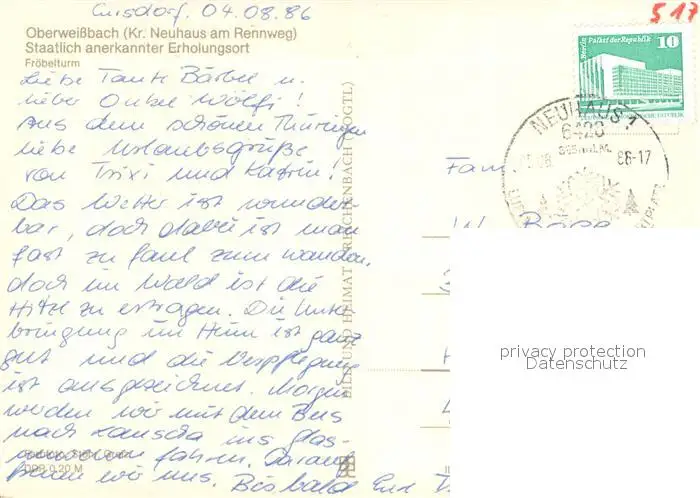 Cursdorf, 04.08.86
517
Oberweißbach (Kr. Neuhaus am Rennweg)
Staatlich anerkannter Erholungsort
Fröbelturm
Berlin Palast der Republik 10
NEUHAUS 1
6420
86-17
Liebe Tante Bärbel u.
lieber Onkel Wölfi!
Aus dem schönen Thüringen
liebe Urlaubsgrüße
von Trixi und Katrin!
Das Wetter ist wunder-
bar, doch dabei ist man
fast zu faul zum wandern,
doch im Wald ist die
Hitze zu ertragen. Die Unter-
bringung im Heim ist ganz
gut und die Verpflegung
ist ausgezeichnet. Morgen
werden wir mit dem Bus
nach Lauscha ins Glas-
museum fahren. Darauf
freuen wir uns. Bis bald Eure
DDR 0,20 M
BILD UND HEIMAT REICHENBACH (VOGTL)
Fam
W.
privacy protection
Datenschutz